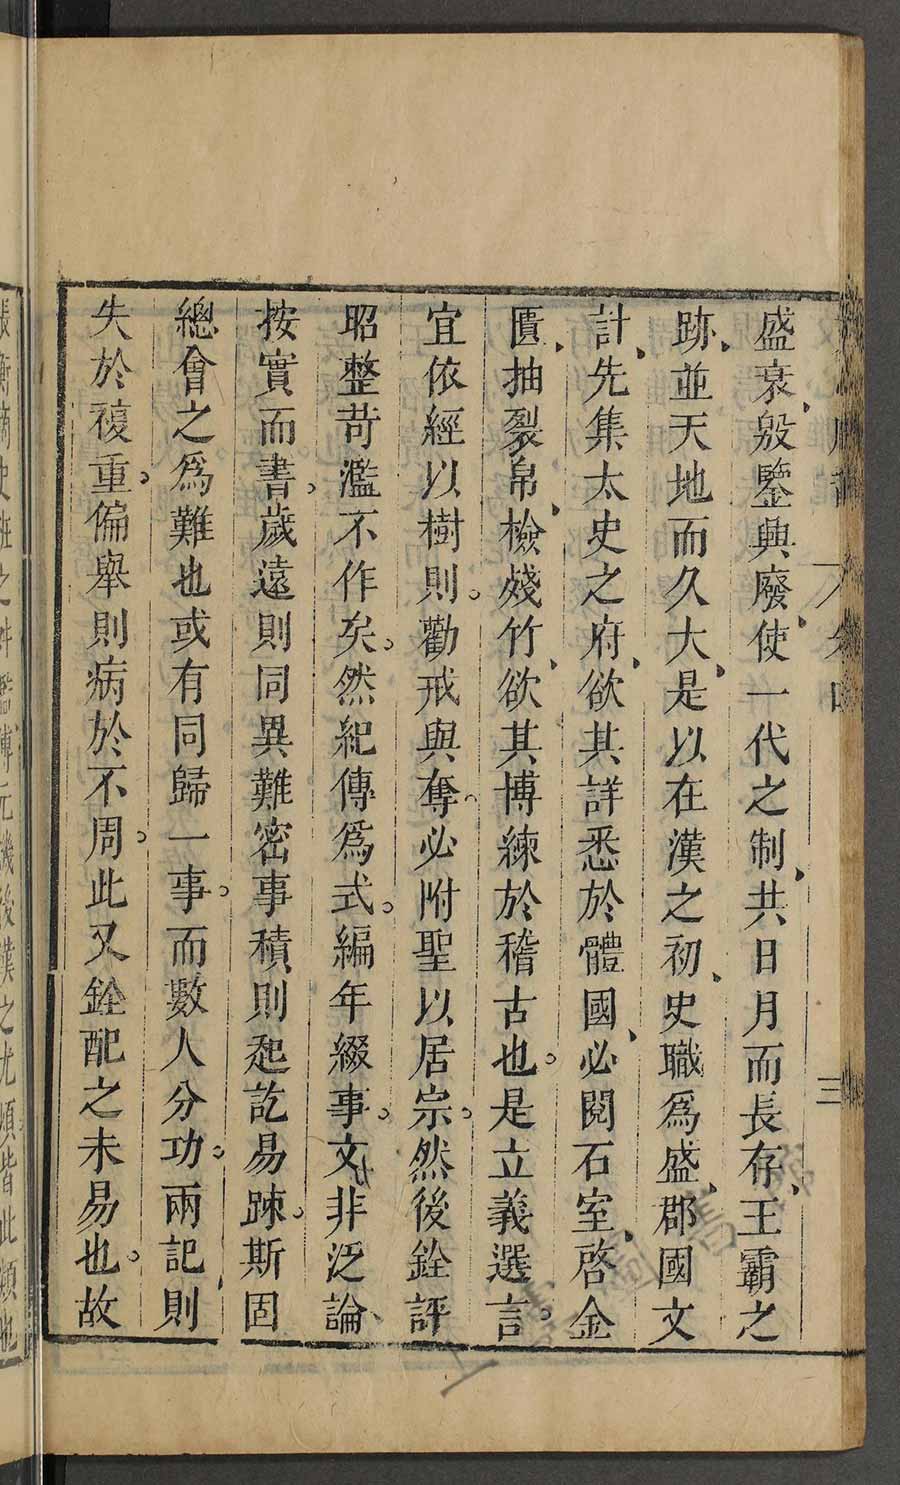 盛衰殷鑒興廢使一代之制共日月而長存王霸之
跡並天地而久大是以在漢之初史職爲盛郡國文
計先集太史之府欲其詳悉於體國必閱石室啓金
匱抽裂帛檢殘竹欲其博練於稽古也是立義選言
宜依經以樹則勸戒與奪必附聖以居宗然後銓評
昭整苛濫不作矣然紀傳爲式編年綴事文非泛論
按實而書歲遠則同異難密事積則起訖易踈斯固
總會之爲難也或有同歸一事而數人分功兩記則
失於複重偏舉則病於不周此又銓配之未易也故
三